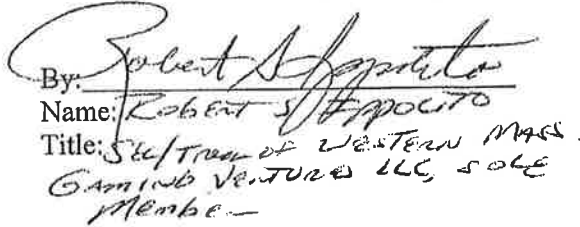 By: Robert S Ippolito
Name: Robert S Ippolito
Title: Sec/Treas of Western Mass.
Gaming Ventures LLC, sole
Member